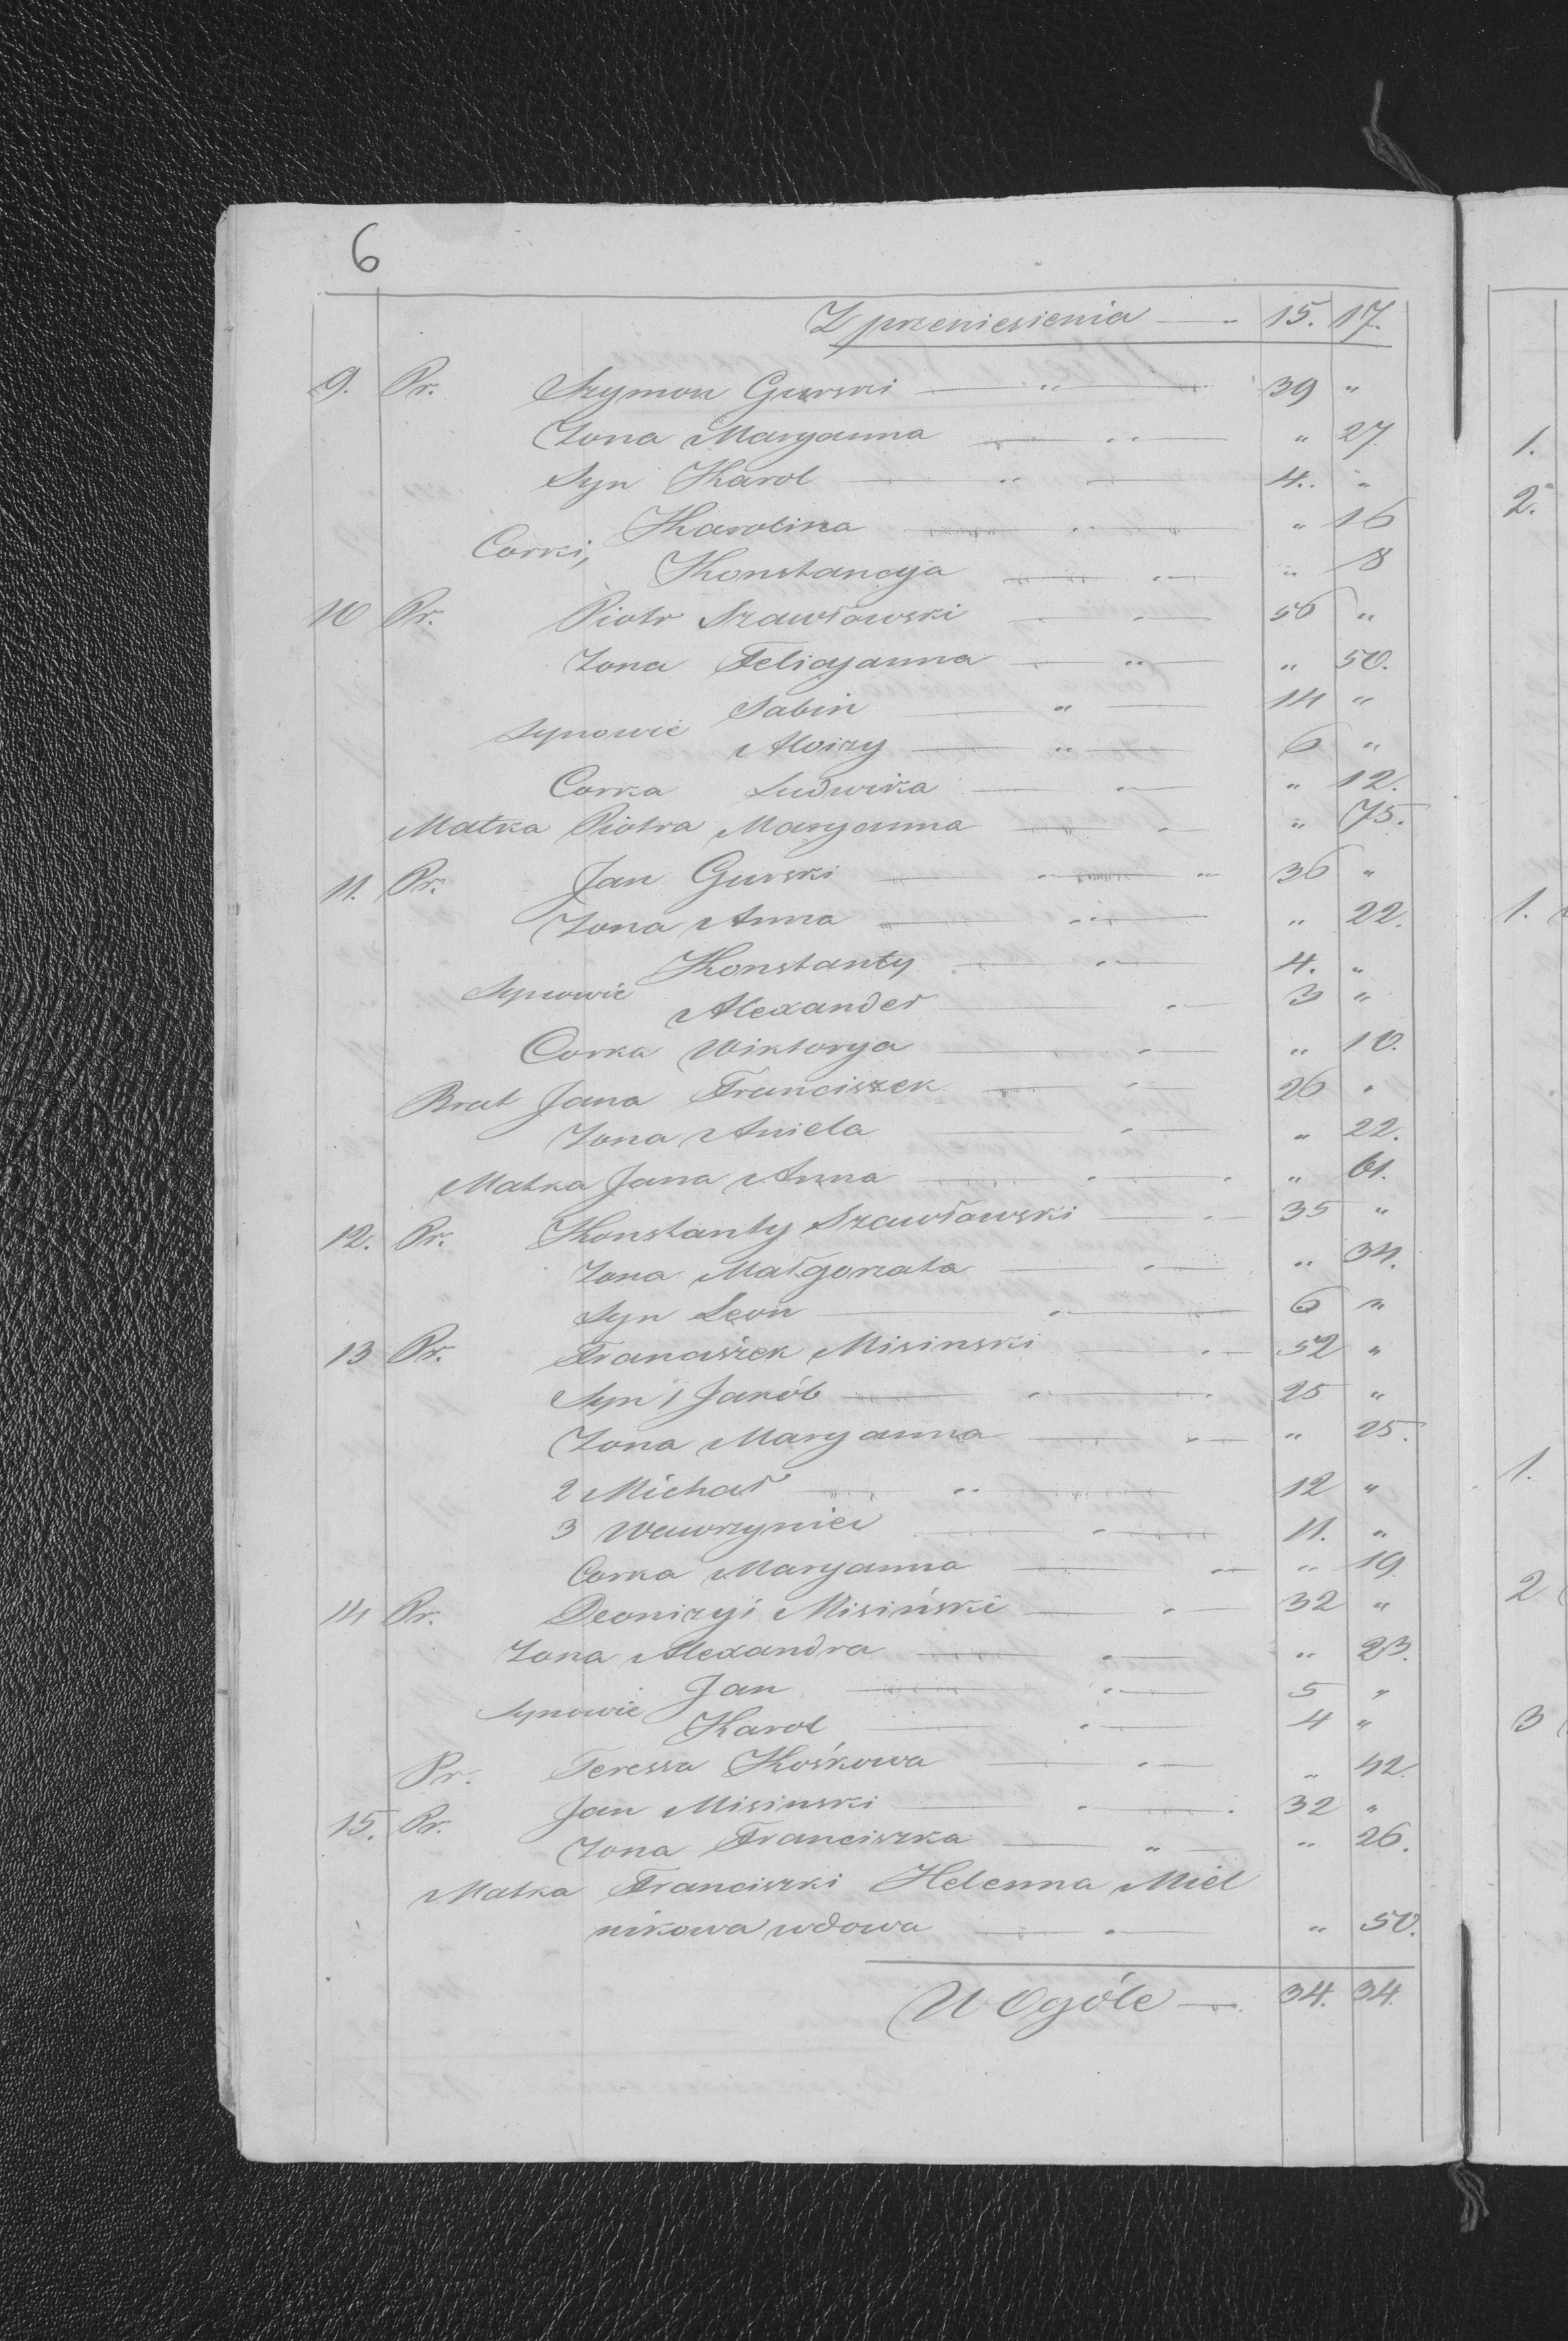 6
Z przeniesienia — „ 15. 17.
9. Pr. Szymon Gurski — „ — 39 „
Zona Maryanna — „ — „ 27
Syn Karol — „ — 4. „
Corki, Karolina — „ — „ 16
Konstancya — „ — „ 8
10 Pr. Piotr Szawłowski — „ — 56 „
Zona Felicyanna — „ — „ 50.
Synowie Sabin — „ — 14 „
Aloizy — „ — 6 „
Corka Ludwika — „ — „ 12.
Matka Piotra Maryanna — „ — „ 75.
11. Pr. Jan Gurski — „ — „ 36 „
Zona Anna — „ — „ 22.
Synowie Konstanty — „ — 4. „
Alexander — „ — 3 „
Corka Wiktorya — „ — „ 10.
Brat Jana Franciszek — „ — 26 „
Zona Aniela — „ — „ 22.
Matka Jana Anna — „ — „ 61.
12. Pr. Konstanty Szawłowski — „ — 35 „
Zona Małgorzata — „ — „ 34.
Syn Leon — „ — 6 „
13 Pr. Franciszek Misinski — „ — 52 „
Syn 1 Jakób — „ — 25 „
Zona Maryanna — „ — „ 25.
2 Michał — „ — 12 „
3 Wawrzyniec — „ — 11. „
Corka Maryanna — „ — „ 19
14 Pr. Deonizyi Misiński — „ — 32 „
Zona Alexandra — „ — „ 23.
Synowie Jan — „ — 5 „
Karol — „ — 4 „
Pr. Teressa Kośkowa — „ — „ 42.
15. Pr. Jan Misinski — „ — 32 „
Zona Franciszka — „ — „ 26.
Matka Franciszki Helenna Miel
nikowa wdowa — „ — „ 50.
W Ogóle — 34. 34.
1.
2.
1.
1.
2
3